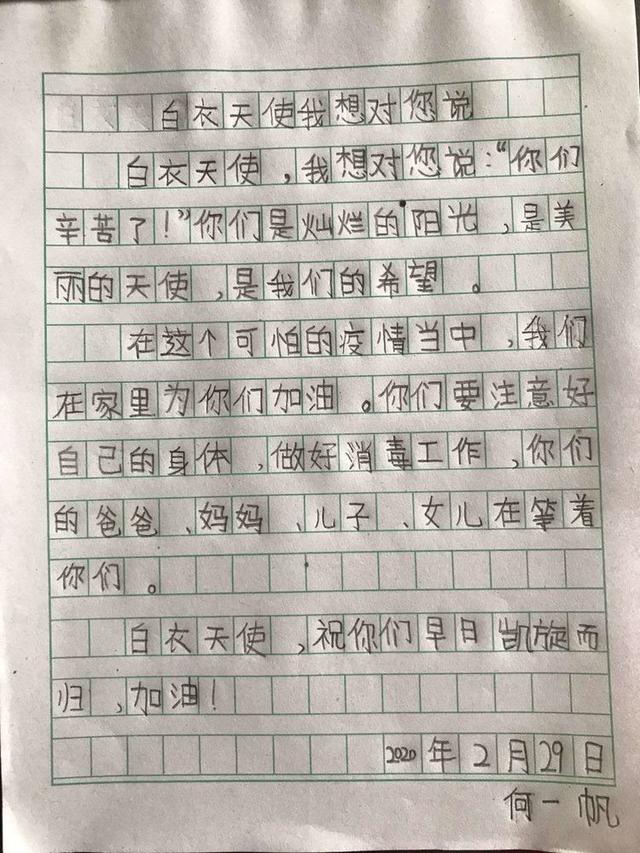 白衣天使我想对您说
白衣天使,我想对您说:“你们
辛苦了!”你们是灿烂的阳光,是美
丽的天使,是我们的希望。
在这个可怕的疫情当中,我们
在家里为你们加油。你们要注意好
自己的身体,做好消毒工作,你们
的爸爸、妈妈、儿子、女儿在等着
你们。
白衣天使,祝你们早日凯旋而
归,加油!
2020年2月29日
何一帆